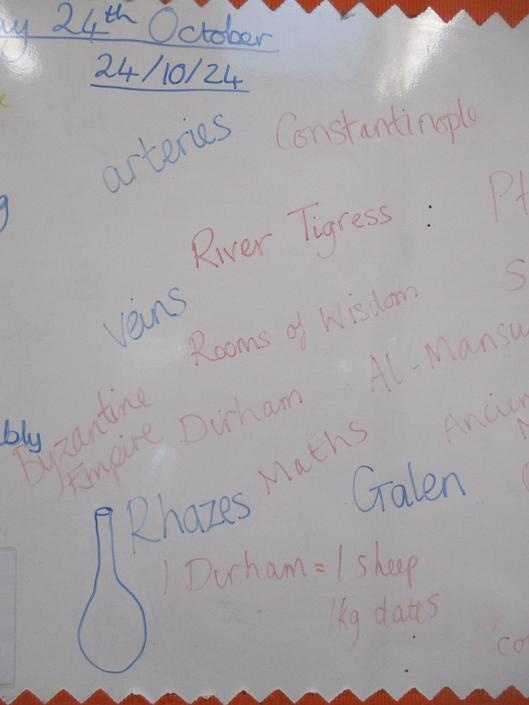 24th October
24/10/24
arteries Constantinople
River Tigress : Pt
veins
Rooms of Wisdom S
Al-Mansu
Byzantine
Empire Dirham
Maths Ancien
bly
Rhazes Galen
1 Durham = 1 sheep
1kg dates
co